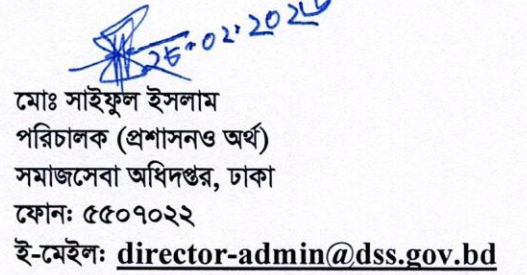 মোঃ সাইফুল ইসলাম
পরিচালক (প্রশাসনও অর্থ)
সমাজসেবা অধিদপ্তর, ঢাকা
ফোনঃ ৫৫০৭০২২
ই-মেইলঃ director-admin@dss.gov.bd